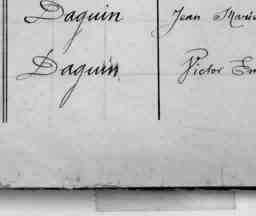 Daguin Jean Marie
Daguin Victor Em